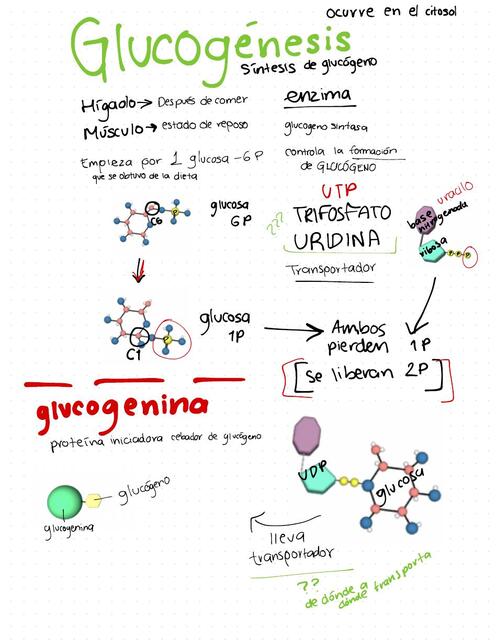 ocurre en el citosol
Glucogénesis
Síntesis de glucógeno
Hígado → Después de comer
Músculo → estado de reposo
Empieza por 1 glucosa - 6P
que se obtuvo de la dieta
enzima
glucogeno sintasa
controla la formación
de GLUCÓGENO
C6
glucosa
6P
P
UTP
???
TRIFOSFATO
URIDINA
Transportador
uracilo
base
nitrogenada
ribosa
P P P
C1
P
glucosa
1P
Ambos
pierden 1P
[se liberan 2P]
glucogenina
proteína iniciadora cebador de glucógeno
glucógeno
glucogenina
UDP
glucosa
lleva
transportador
??
de dónde a
dónde transporta